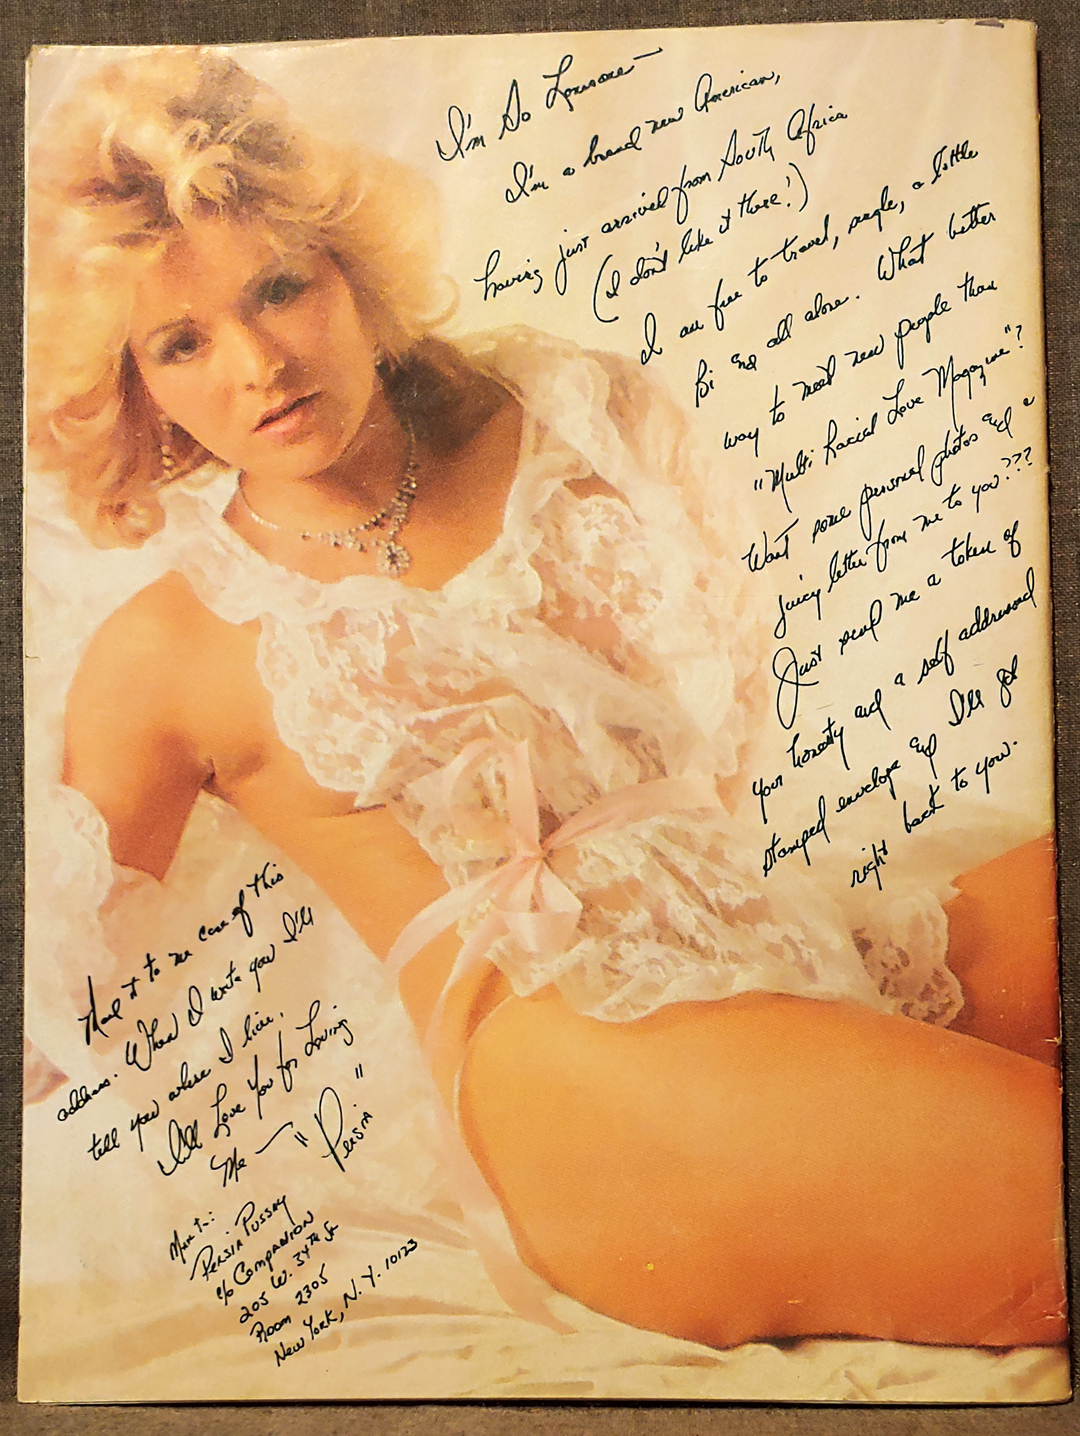 I'm So Lonesome—
I'm a brand new American,
having just arrived from South Africa
(I don't like it there!)
I am free to travel, single, a little
Bi and all alone. What better
way to meet new people than
"Multi Racial Love Magazine"?
Want some personal photos and a
juicy letter from me to you???
Just send me a token of
your honesty and a self addressed
stamped envelope and I'll get
right back to you.
Mail it to me care of this
address. When I write you I'll
tell you where I live.
I'll Love You for Loving
Me — "Persia"
Persia Pussay
c/o Companion
205 W. 34th St
Room 2305
New York, N.Y. 10123